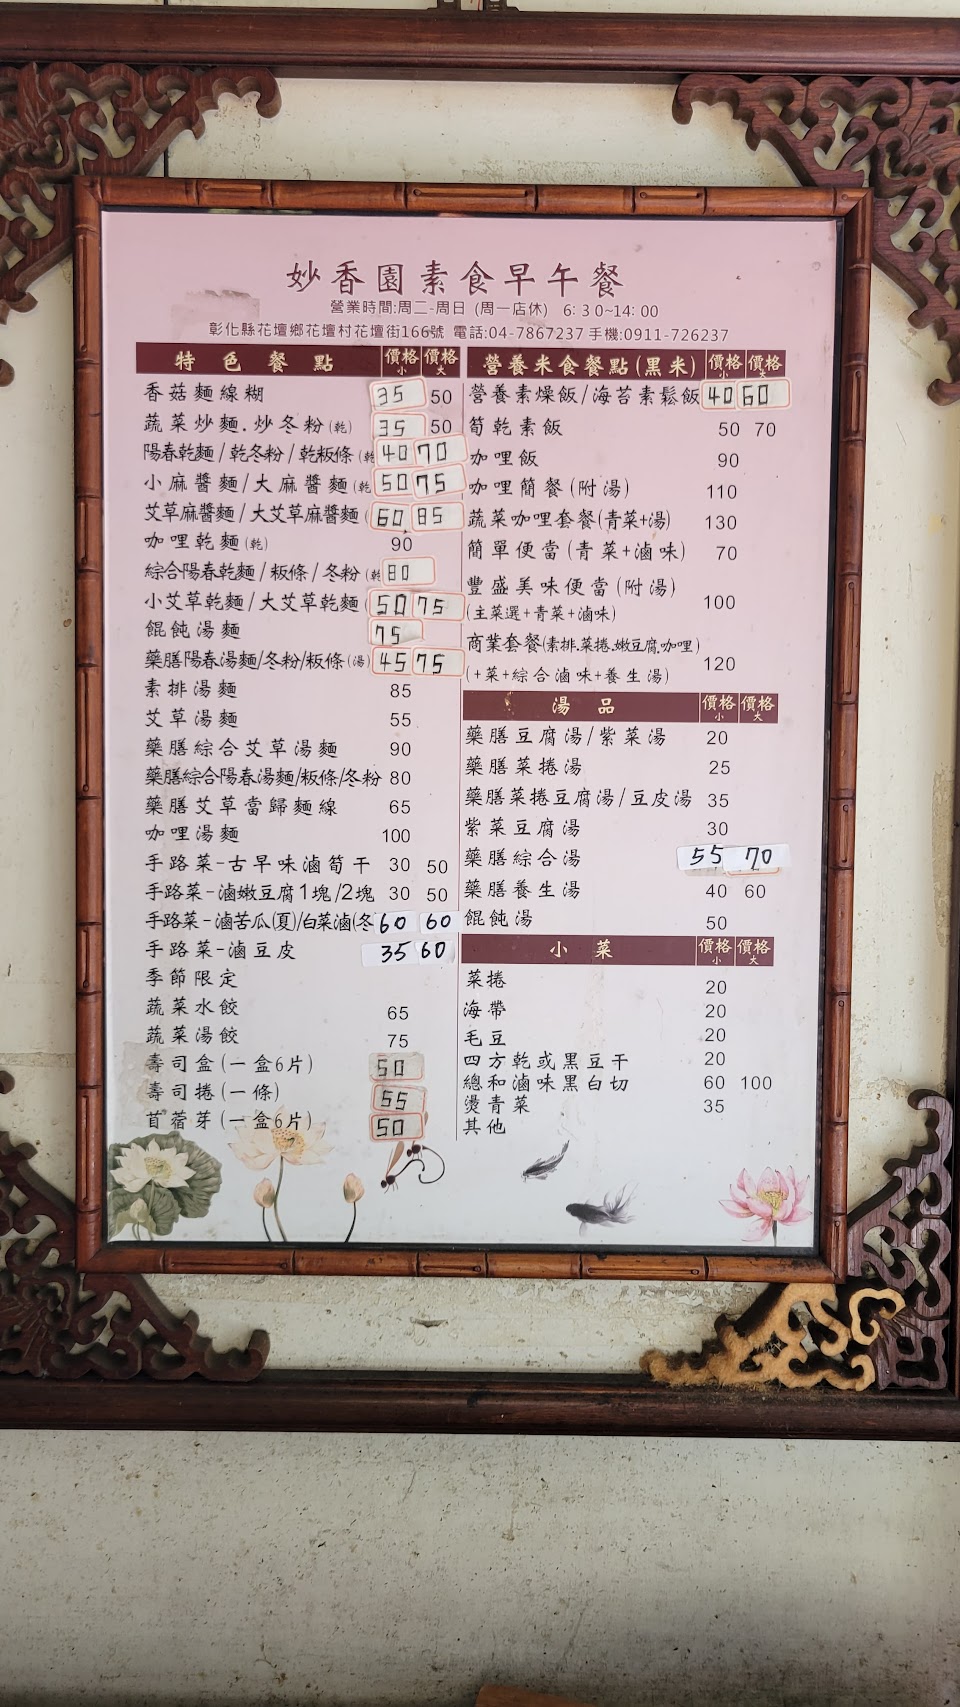 妙香園素食早午餐
營業時間:周二-周日 (周一店休) 6:30~14:00
彰化縣花壇鄉花壇村花壇街166號 電話:04-7867237 手機:0911-726237
特色餐點 價格小 價格大
香菇麵線糊 35 50
蔬菜炒麵.炒冬粉(乾) 35 50
陽春乾麵/乾冬粉/乾粄條(乾 40 70
小麻醬麵/大麻醬麵(乾 50 75
艾草麻醬麵/大艾草麻醬麵( 60 85
咖哩乾麵(乾) 90
綜合陽春乾麵/粄條/冬粉(乾 80
小艾草乾麵/大艾草乾麵( 50 75
餛飩湯麵 75
藥膳陽春湯麵/冬粉/粄條(湯) 45 75
素排湯麵 85
艾草湯麵 55
藥膳綜合艾草湯麵 90
藥膳綜合陽春湯麵/粄條/冬粉 80
藥膳艾草當歸麵線 65
咖哩湯麵 100
手路菜-古早味滷筍干 30 50
手路菜-滷嫩豆腐1塊/2塊 30 50
手路菜-滷苦瓜(夏)/白菜滷(冬 60 60
手路菜-滷豆皮 35 60
季節限定
蔬菜水餃 65
蔬菜湯餃 75
壽司盒(一盒6片) 50
壽司捲(一條) 55
苜蓿芽(一盒6片) 50
營養米食餐點(黑米) 價格小 價格大
營養素燥飯/海苔素鬆飯 40 60
筍乾素飯 50 70
咖哩飯 90
咖哩簡餐(附湯) 110
蔬菜咖哩套餐(青菜+湯) 130
簡單便當(青菜+滷味) 70
豐盛美味便當(附湯)
(主菜選+青菜+滷味) 100
商業套餐(素排.菜捲.嫩豆腐.咖哩)
(+菜+綜合滷味+養生湯) 120
湯品 價格小 價格大
藥膳豆腐湯/紫菜湯 20
藥膳菜捲湯 25
藥膳菜捲豆腐湯/豆皮湯 35
紫菜豆腐湯 30
藥膳綜合湯 55 70
藥膳養生湯 40 60
餛飩湯 50
小菜 價格小 價格大
菜捲 20
海帶 20
毛豆 20
四方乾或黑豆干 20
總和滷味黑白切 60 100
燙青菜 35
其他